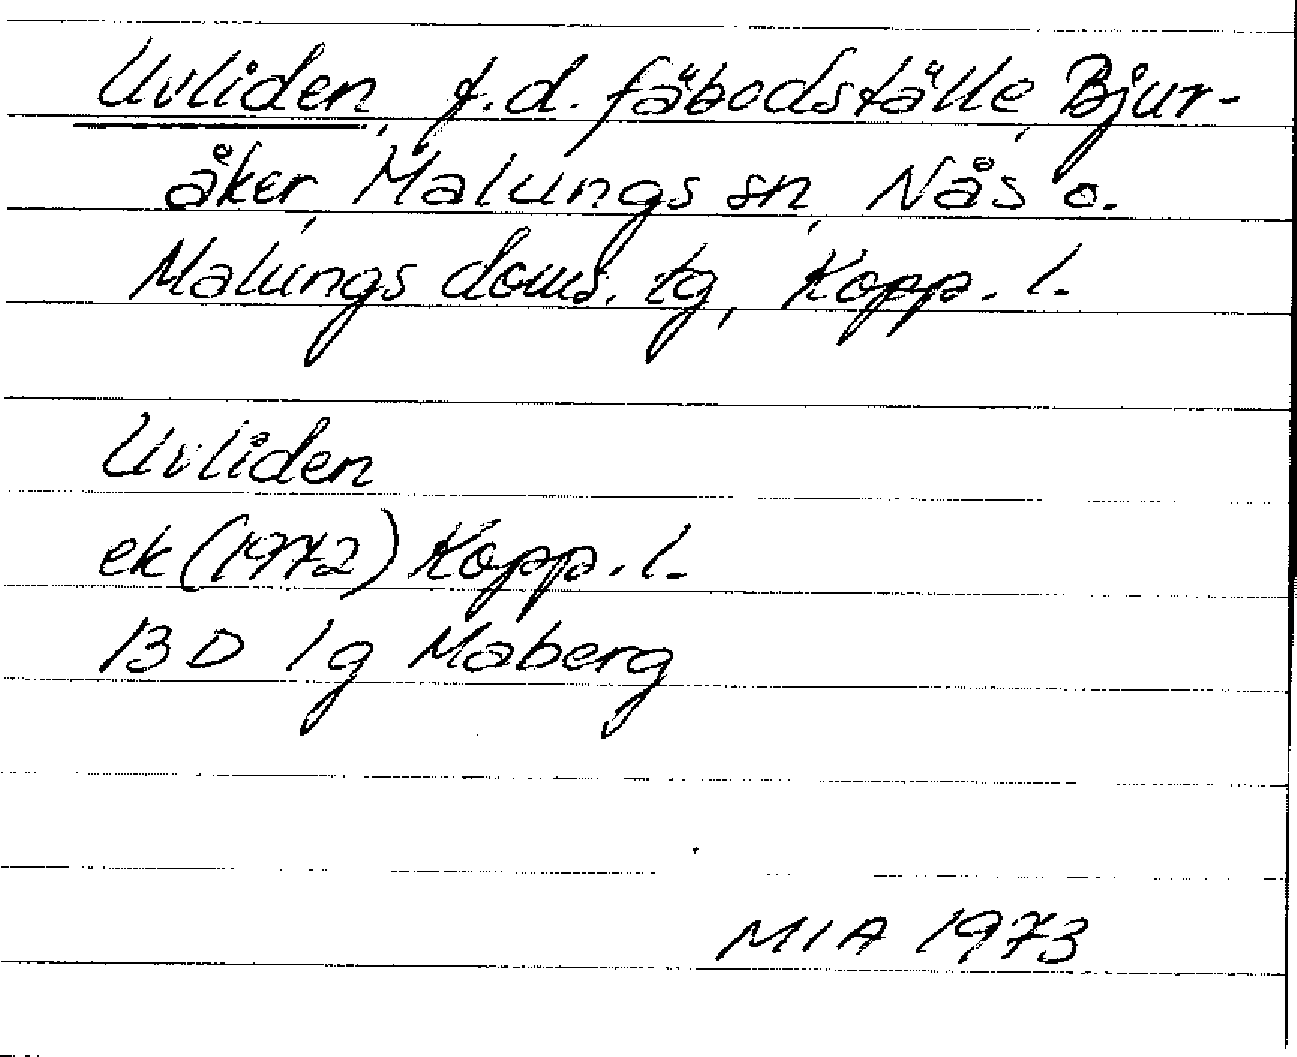 Uvliden, f.d. fäbodställe, Bjur-
åker, Malungs sn, Nås o.
Malungs doms. tg, Kopp. l.
Uvliden
ek (1972) Kopp. l.
13 D 1g Maberg
MIA 1973